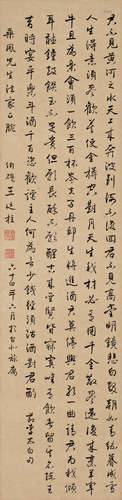 君不見黃河之水天上來奔流到海不復回君不見高堂明鏡悲白髮朝如青絲暮成雪
人生得意須盡歡莫使金樽空對月天生我材必有用千金散盡還復來烹羊宰
牛且為樂會須飲三百杯岑夫子丹邱生將進酒君莫停與君歌一曲請君為我傾
耳聽鐘鼓饌玉不足貴但願長醉不願醒古來聖賢皆寂寞惟有飲者留其名陳王
昔時宴平樂斗酒十千恣歡謔主人何為言少錢徑須沽酒對君酌 李太白句
先生法家正腕 王廷柱 六十四年六月於台北旅寓